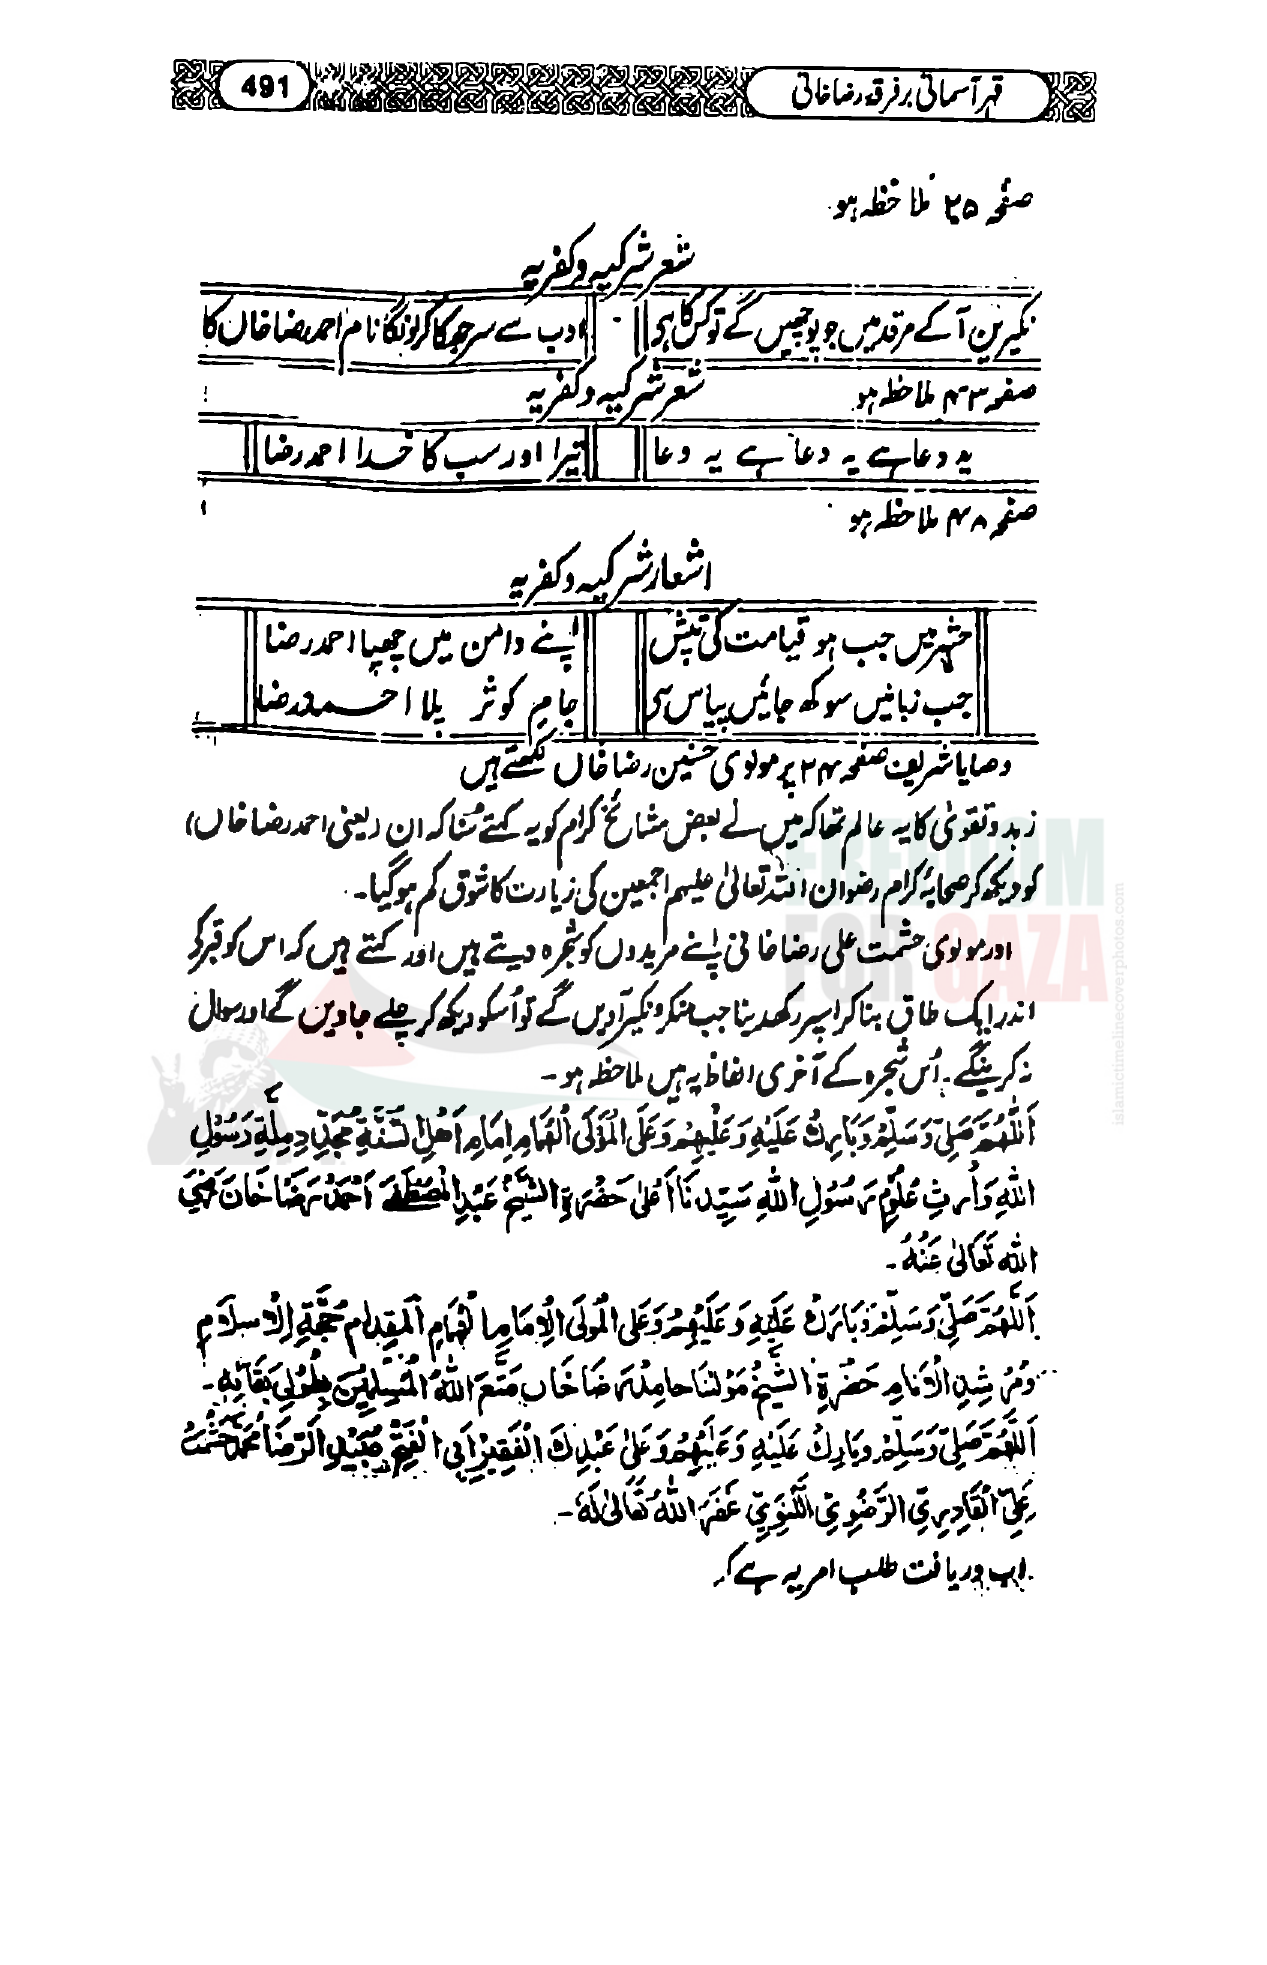 قہر آسمانی بر فرقہ رضاخانی
491
صفحہ ۲۵ ملاحظہ ہو۔
شعر شرکیہ و کفریہ
نکیرین آ کے مرقد میں جو پوچھیں گے تو کس کا ہے ادب سے سر جھکا کر لونگا نام احمد رضا خاں کا
صفحہ ۴۳ ملاحظہ ہو۔ شعر شرکیہ و کفریہ
یہ دعا ہے یہ دعا ہے یہ دعا تیرا اور سب کا خدا احمد رضا
صفحہ ۴۸ ملاحظہ ہو
اشعار شرکیہ و کفریہ
حشر میں جب ہو قیامت کی تپش اپنے دامن میں چھپا احمد رضا
جب زبانیں سوکھ جائیں پیاس سے جام کوثر پلا احمد رضا
وصایا شریف صفحہ ۲۴ پر مولوی حسنین رضا خاں لکھتے ہیں
زہد و تقویٰ کا یہ عالم تھا کہ میں نے بعض مشائخ کرام کو یہ کہتے سُنا کہ ان (یعنی احمد رضا خاں)
کو دیکھ کر صحابۂ کرام رضوان اللہ تعالیٰ علیہم اجمعین کی زیارت کا شوق کم ہو گیا۔
اور مولوی حشمت علی رضا خانی اپنے مریدوں کو شجرہ دیتے ہیں اور کہتے ہیں کہ اس کو قبر کے
اندر ایک طاق بنا کر اسپر رکھدینا جب منکر و نکیر آویں گے تو اُسکو دیکھ کر چلے جاویں گے اور سوال
نہ کرینگے۔ اُس شجرہ کے آخری الفاظ یہ ہیں ملاحظہ ہو۔
اَللّٰهُمَّ صَلِّ وَسَلِّمْ وَبَارِكْ عَلَيْهِ وَعَلَيْهِمْ وَعَلَى الْمَوْلَى الْهُمَامِ اِمَامِ اَهْلِ السُّنَّةِ مُجَدِّدِ مِلَّةِ رَسُوْلِ
اللّٰهِ وَارِثِ عُلُوْمِ رَسُوْلِ اللّٰهِ سَيِّدِنَا اَعْلٰى حَضْرَةِ الشَّيْخِ عَبْدِ الْمُصْطَفٰى اَحْمَدْ رَضَا خَانْ رَضِيَ
اللّٰهُ تَعَالٰى عَنْهُ۔
اَللّٰهُمَّ صَلِّ وَسَلِّمْ وَبَارِكْ عَلَيْهِ وَعَلَيْهِمْ وَعَلَى الْمَوْلَى الْاِمَامِ الْهُمَامِ الْمِقْدَامِ حُجَّةِ الْاِسْلَامِ
وَمُرْشِدِ الْاَنَامِ حَضْرَةِ الشَّيْخِ مَوْلٰنَا حَامِدْ رَضَا خَاں مَتَّعَ اللّٰهُ الْمُسْلِمِيْنَ بِطُوْلِ بَقَائِهِ۔
اَللّٰهُمَّ صَلِّ وَسَلِّمْ وَبَارِكْ عَلَيْهِ وَعَلَيْهِمْ وَعَلٰى عَبْدِكَ الْفَقِيْرِ اَبِي الْفَتْحِ عُبَيْدِ الرَّضَا مُحَمَّدْ حَشْمَتْ
عَلِي الْقَادِرِيِّ الرَّضَوِيِّ اللَّكْنَوِيِّ غَفَرَ اللّٰهُ تَعَالٰى لَهٗ۔
اب دریافت طلب امر یہ ہے کہ
FREEDOM
FOR GAZA
islamictimelinecoverphotos.com